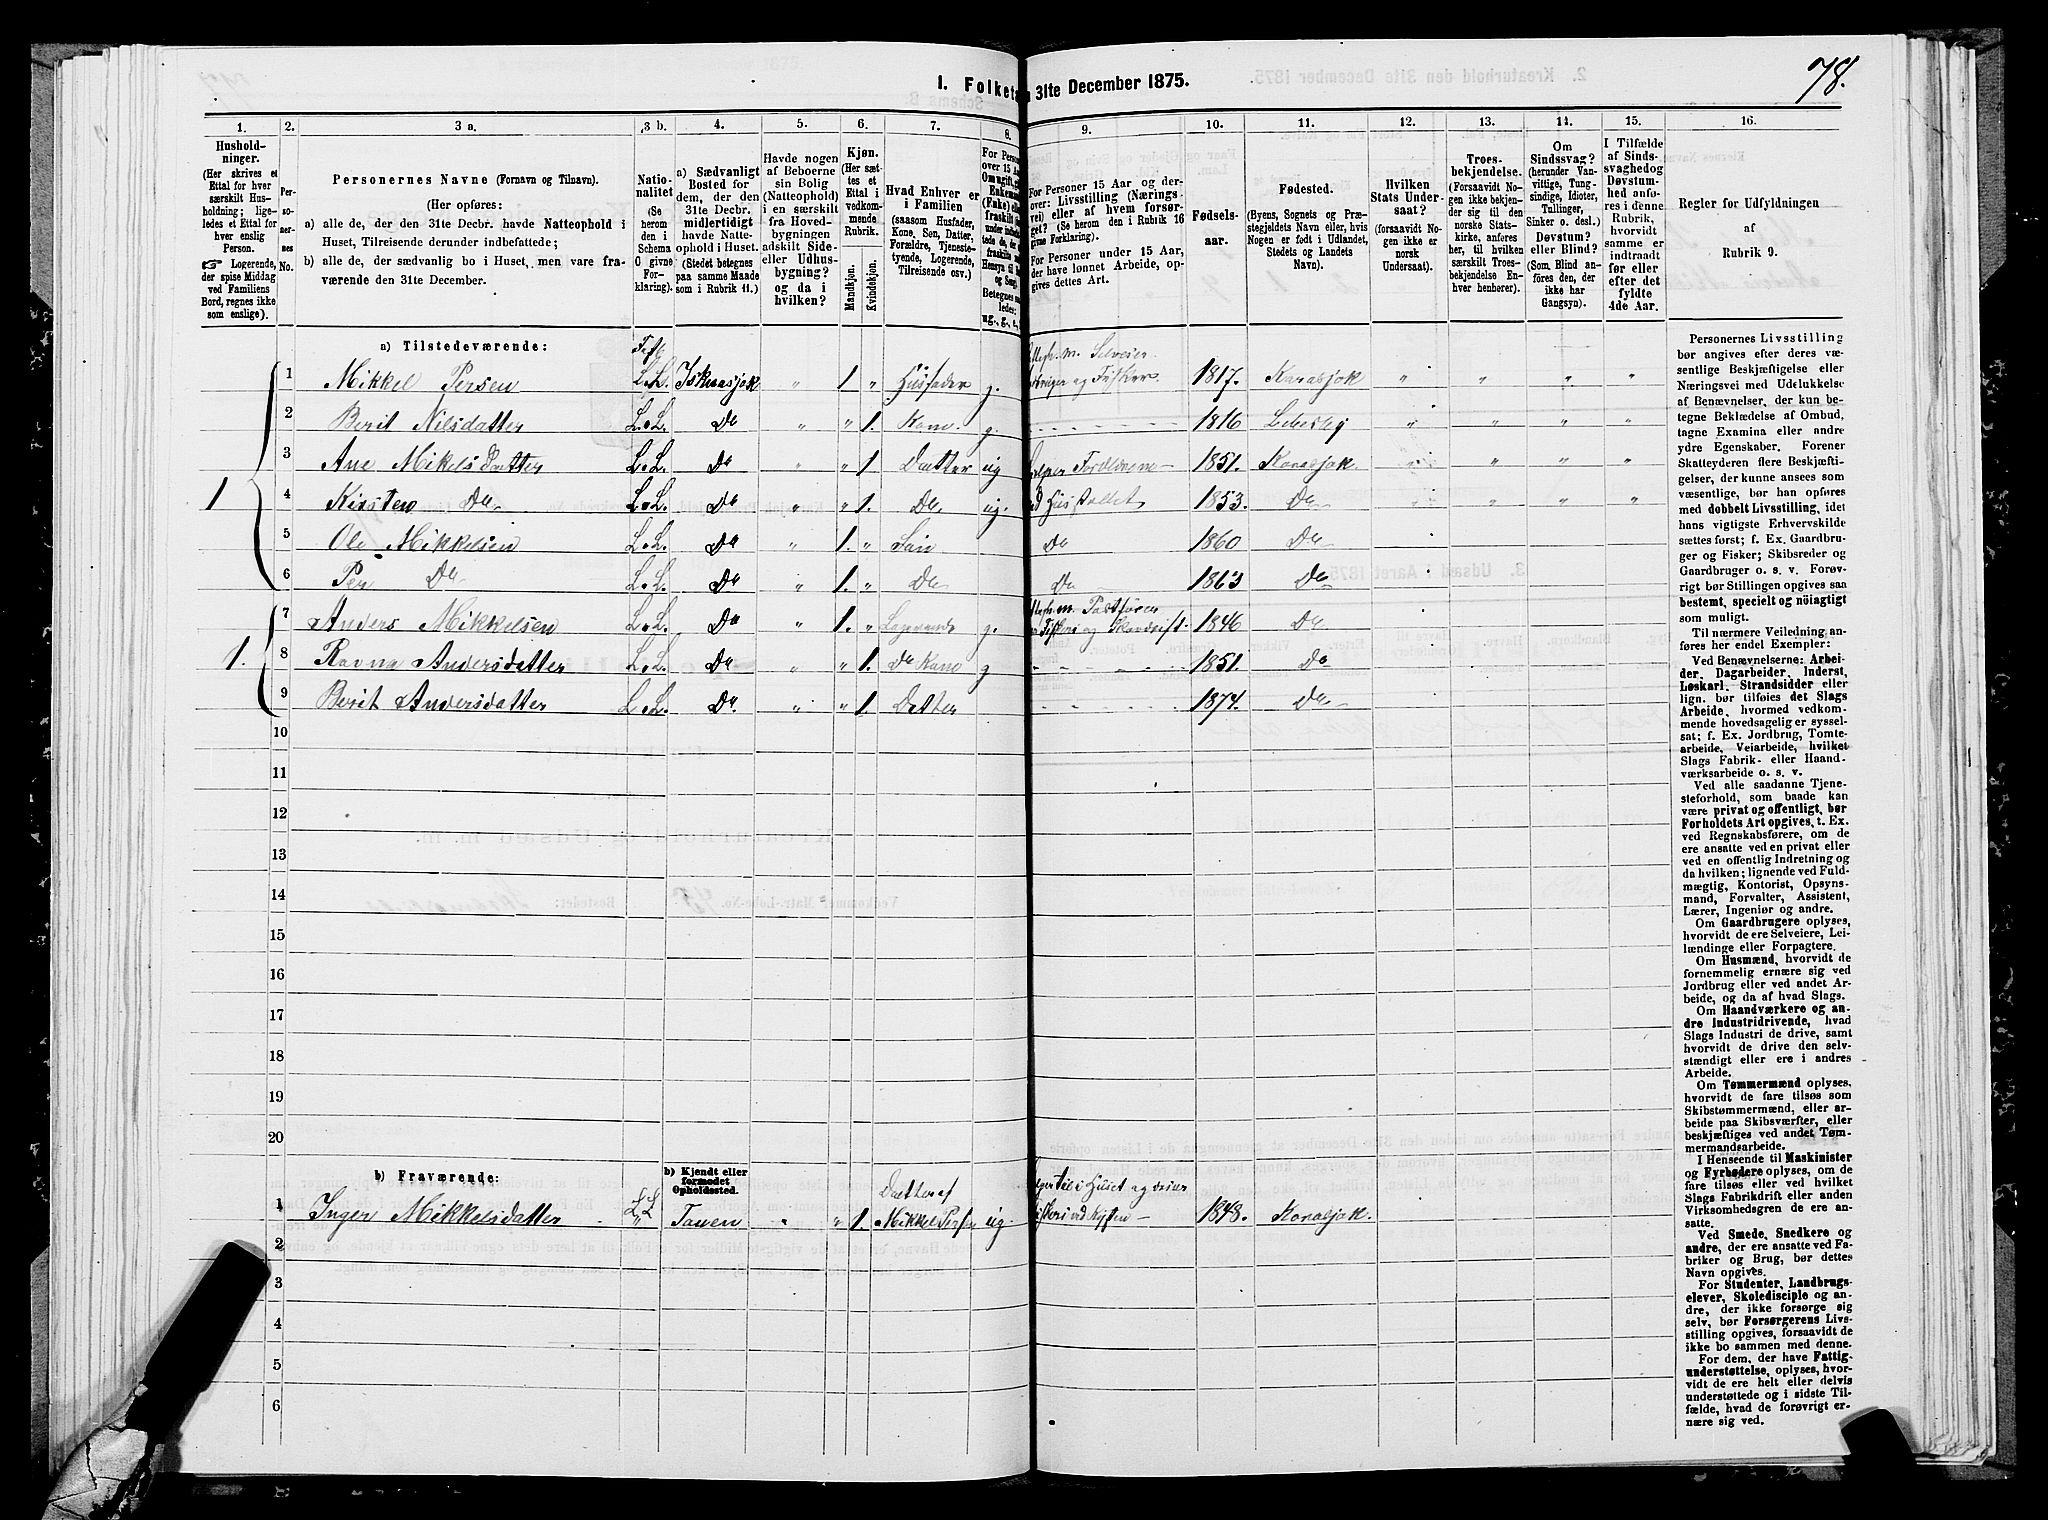 78.
I. Folketa
31te December 1875.
1.
2.
3 a.
3 b.
4.
5.
6.
7.
8.
9.
10.
11.
12.
13.
14.
15.
16.
Hushold-
ninger.
(Her skrives et
Ettal for hver
særskilt Hus-
holdning; lige-
ledes et Ettal for
hver enslig
Person.
Logerende,
der spise Middag
ved Familiens
Bord, regnes ikke
som enslige).
Per-
so-
ner-
nes
No.
Personernes Navne (Fornavn og Tilnavn).
(Her opføres:
a) alle de, der den 31te Decbr. havde Natteophold i
Huset, Tilreisende derunder indbefattede;
b) alle de, der sædvanlig bo i Huset, men vare fra-
værende den 31te December.
Natio-
nalitet
(Se
herom
den i
Schema
O givne
For-
klaring).
a) Sædvanligt
Bosted for
dem, der den
31te Decbr.
midlertidigt
havde Natte-
ophold i Huset.
(Stedet betegnes
paa samme Maade
som i Rubrik 11.)
Havde nogen
af Beboerne
sin Bolig
(Natteophold)
i en særskilt
fra Hoved-
bygningen
adskilt Side-
eller Udhus-
bygning?
og da i
hvilken?
Kjøn.
(Her sæt-
tes et
Ettal i
vedkom-
mende
Rubrik.
Mandkjøn.
Kvindekjøn.
Hvad Enhver er
i Familien
(saasom Husfader,
Kone, Søn, Datter,
Forældre, Tjeneste-
tyende, Logerende,
Tilreisende osv.)
For Personer 15 Aar og der-
over: Livsstilling (Nærings-
vei) eller af hvem forsør-
get? (Se herom den i Rubrik 16
givne Forklaring).
For Personer under 15 Aar,
der have lønnet Arbeide, op-
gives dettes Art.
Fødsels-
aar.
Fødested.
(Byens, Sognets og Præ-
stegjeldets Navn eller, hvis
Nogen er født i Udlandet,
Stedets og Landets
Navn).
Hvilken
Stats Under-
saat?
(forsaavidt No-
gen ikke er
norsk
Undersaat).
Troes-
bekjendelse.
(Forsaavidt No-
gen ikke bekjen-
der sig til den
norske Stats-
kirke, anføres
her, til hvilken
særskilt Troes-
bekjendelse En-
hver henhører).
Om
Sindssvag?
(herunder Van-
vittige, Tung-
sindige, Idioter,
Tullinger,
Sinker o. desl.)
Døvstum?
eller Blind?
(Som Blind an-
føres den, der
ikke har
Gangsyn).
I Tilfælde
af Sinds-
svaghed og
Døvstum-
hed anføres
i denne
Rubrik,
hvorvidt
samme er
indtraadt
før eller
efter det
fyldte
4de Aar.
Regler for Udfyldningen
af
Rubrik 9.
a) Tilstedeværende:
1 1 Mikkel Persen L. L. Iskurasjok " 1 " Husfader g. og Fisker. 1817. Karasjok " " " "
2 Berit Nilsdatter L. L. Do " " 1. Kone g. 1816 Lebesby " " " "
3 Ane Mikelsdatter L. L. Do " " 1 Datter ug Forældrene 1851. Karasjok " " " "
4 Kirsten Do L. L. Do " " 1. Do ug. 1853. Do " " " "
5 Ole Mikkelsen L. L. Do " 1. " Søn Do 1860 Do
6 Per Do L. L. Do " 1. " Do Do 1863 Do
1. 7 Anders Mikkelsen L. L. Do " 1. " Logerende g. 1846 Do
8 Ravna Andersdatter L. L. Do " " 1. Do Kone g 1851. Do
9 Berit Andersdatter L. L. Do. " " 1. Datter 1874. Do
10
11
12
13
14
15
16
17
18
19
20
b) Fraværende:
b) Kjendt eller
formodet
Opholdssted.
1 Inger Mikkelsdatter L. L. Tanen " " 1. Datter af Mikkel Persen ug. 1848. Karasjok
2
3
4
5
6
Personernes Livsstilling
bør angives efter deres væ-
sentlige Beskjæftigelse eller
Næringsvei med Udelukkelse
af Benævnelser, der kun be-
tegne Beklædelse af Ombud,
tagne Examina eller andre
ydre Egenskaber. Forener
Skatteyderen flere Beskjæfti-
gelser, der kunne ansees som
væsentlige, bør han opføres
med dobbelt Livsstilling, idet
hans vigtigste Erhvervskilde
sættes først; f. Ex. Gaardbru-
ger og Fisker; Skibsreder og
Gaardbruger o. s. v. Forøv-
rigt bør Stillingen opgives saa
bestemt, specielt og nøiagtigt
som muligt.
Til nærmere Veiledning an-
føres her endel Exempler:
Ved Benævnelserne: Arbei-
der, Dagarbeider, Inderst,
Løskarl, Strandsidder eller
lign. bør tilføies det Slags
Arbeide, hvormed vedkom-
mende hovedsagelig er syssel-
sat; f. Ex. Jordbrug, Tomte-
arbeide, Veiarbeide, hvilket
Slags Fabrik- eller Haand-
værksarbeide o. s. v.
Ved alle saadanne Tjene-
steforhold, som baade kan
være privat og offentligt, bør
Forholdets Art opgives, t. Ex.
ved Regnskabsførere, om de
ere ansatte ved en privat eller
ved en offentlig Indretning og
da hvilken; lignende ved Fuld-
mægtig, Kontorist, Opsyns-
mand, Forvalter, Assistent,
Lærer, Ingeniør og andre.
Om Gaardbrugere oplyses,
hvorvidt de ere Selveiere, Lei-
lændinge eller Forpagtere.
Om Husmænd, hvorvidt de
fornemmelig ernære sig ved
Jordbrug eller ved andet Ar-
beide, og da af hvad Slags.
Om Haandværkere og an-
dre Industridrivende, hvad
Slags Industri de drive, samt
hvorvidt de drive den selv-
stændigt eller ere i andres
Arbeide.
Om Tømmermænd oplyses,
hvorvidt de fare tilsøs som
Skibstømmermænd, eller ar-
beide paa Skibsværfter, eller
beskjæftiges ved andet Tøm-
mermandsarbeide.
I Henseende til Maskinister
og Fyrbødere oplyses, om de
fare tilsøs eller ved hvilket
Slags Fabrikdrift eller anden
Virksomhedsgren de ere an-
satte.
Ved Smede, Snedkere og
andre, der ere ansatte ved Fa-
briker og Brug, bør dettes
Navn opgives.
For Studenter, Landbrugs-
elever, Skoledisciple og an-
dre, der ikke forsørge sig
selv, bør Forsørgerens Livs-
stilling opgives, forsaavidt de
ikke bo sammen med denne.
For dem, der have Fattig-
understøttelse, oplyses, hvor-
vidt de ere helt eller delvis
understøttede og i sidste Til-
fælde, hvad de forøvrigt er-
nære sig ved.